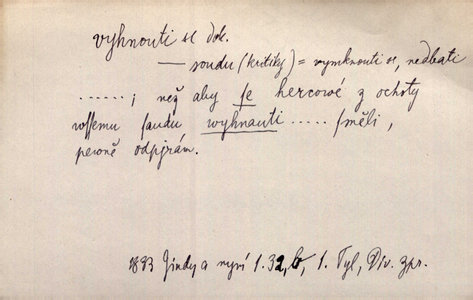 vyhnouti se dok.
— soudu (kritiky) = vymknouti se, nedbati
......; než aby se hercowé z ochoty
wssemu saudu wyhnauti ..... směli,
pewně odpjrám.
1833 Jindy a nyní 1.32,b, J. Tyl, Div. zpr.